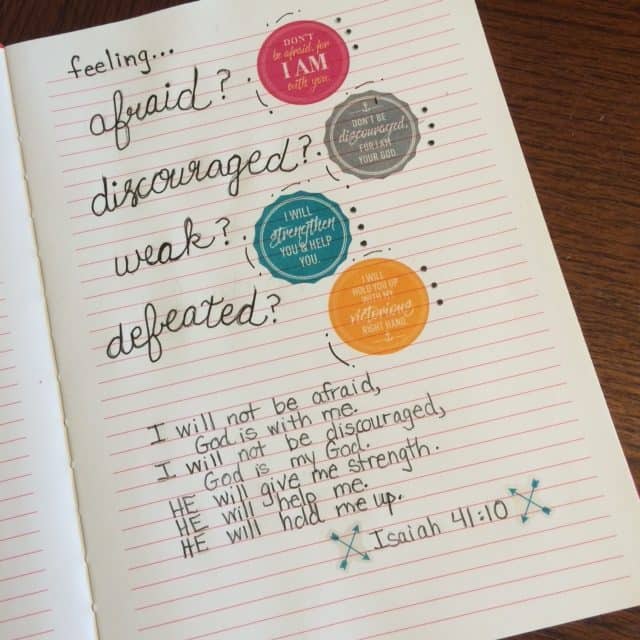 feeling...
afraid?
DON'T
be afraid, for
I AM
with you.
discouraged?
DON'T BE
discouraged,
FOR I AM
YOUR GOD.
weak?
I WILL
strengthen
YOU & HELP
YOU.
defeated?
I WILL
HOLD YOU UP
WITH MY
victorious
RIGHT HAND.
I will not be afraid,
God is with me.
I will not be discouraged,
God is my God.
HE will give me strength.
HE will help me.
HE will hold me up.
Isaiah 41:10